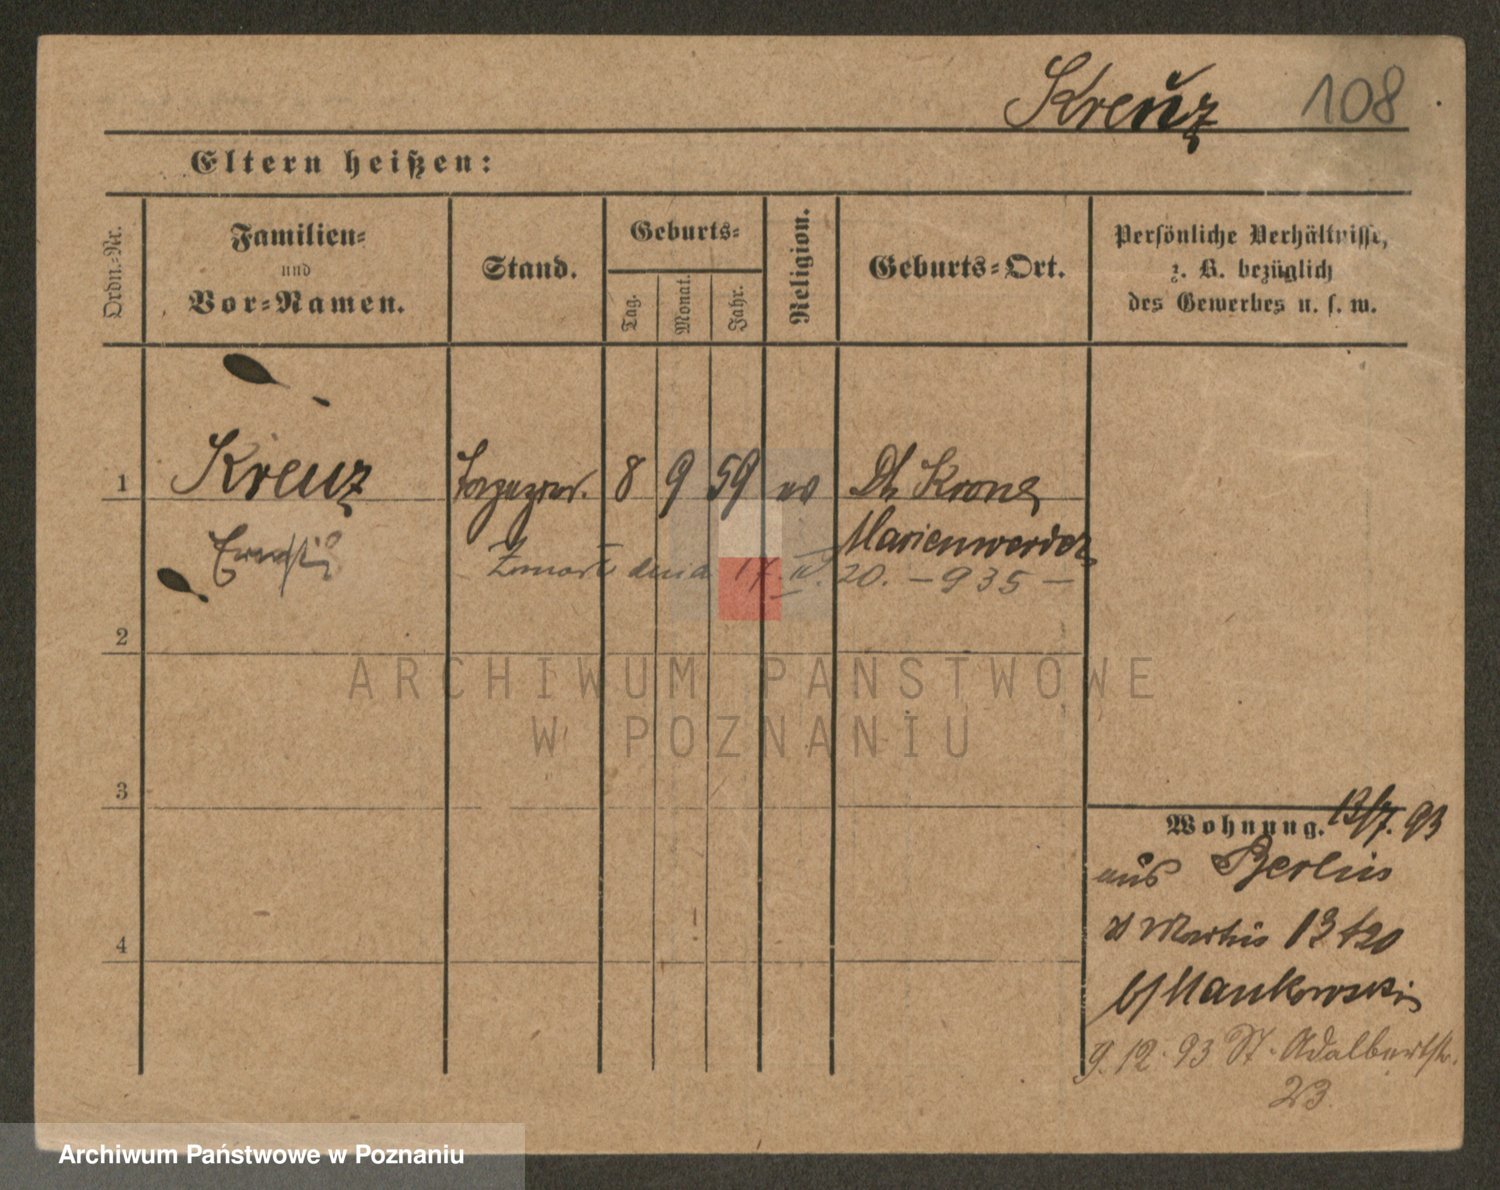 Kreuz 108
Eltern heißen:
Ordn.-Nr.
Familien-
und
Vor-Namen.
Stand.
Geburts-
Tag.
Monat.
Jahr.
Religion.
Geburts-Ort.
Persönliche Verhältnisse,
z. B. bezüglich
des Gewerbes u. s. w.
1 Kreuz 8 9 59 Dt Krone
Marienwerder
dnia 17. IV. 20. - 935 -
2
3
4
Wohnung. 13/7. 93
aus Berlin
Martin 13 t20
b/Mankowski
9. 12. 93 St. Adalbertstr.
23
ARCHIWUM PAŃSTWOWE
W POZNANIU
Archiwum Państwowe w Poznaniu